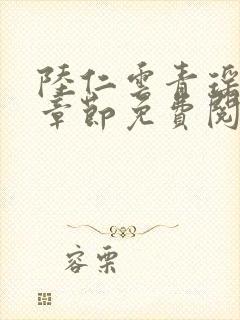 陸仁雲青瑤
章節免費閱
容栗